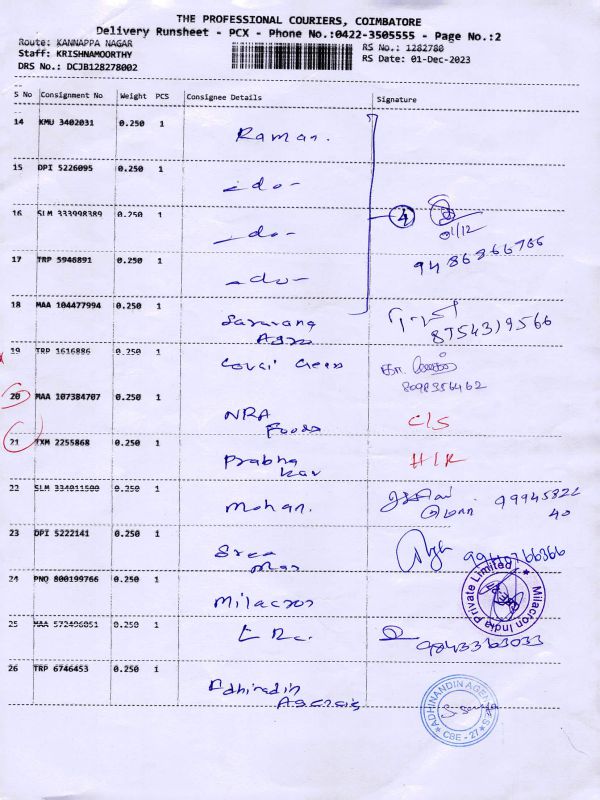 THE PROFESSIONAL COURIERS, COIMBATORE
Delivery Runsheet - PCX - Phone No.:0422-3505555 - Page No.:2
Route: KANNAPPA NAGAR
RS No.: 1282780
Staff: KRISHNAMOORTHY
RS Date: 01-Dec-2023
DRS No.: DCJB128278002
S No Consignment No Weight PCS Consignee Details Signature
14 KMU 3402031 0.250 1 Raman.
15 DPI 5226095 0.250 1 -do-
16 SLM 333998389 0.250 1 -do- 4
01/12
17 TRP 5946891 0.250 1 -do- 9486866766
18 MAA 104477994 0.250 1 Saravana
Agro
8754319566
19 TRP 1616886 0.250 1 Covai
8098356462
20 MAA 107384707 0.250 1 NRA
Foods
C/S
21 TXM 2255868 0.250 1 Prabha
kar
H/R
22 SLM 334011500 0.250 1 Mohan. 99945822
40
23 DPI 5222141 0.250 1 Sree
24 PNQ 800199766 0.250 1 Milacron
Milacron India Private Limited
25 MAA 572496051 0.250 1
9843363033
26 TRP 6746453 0.250 1 Adhinadin
Agencis
ADHINANDIN AGENCIES
CBE - 27